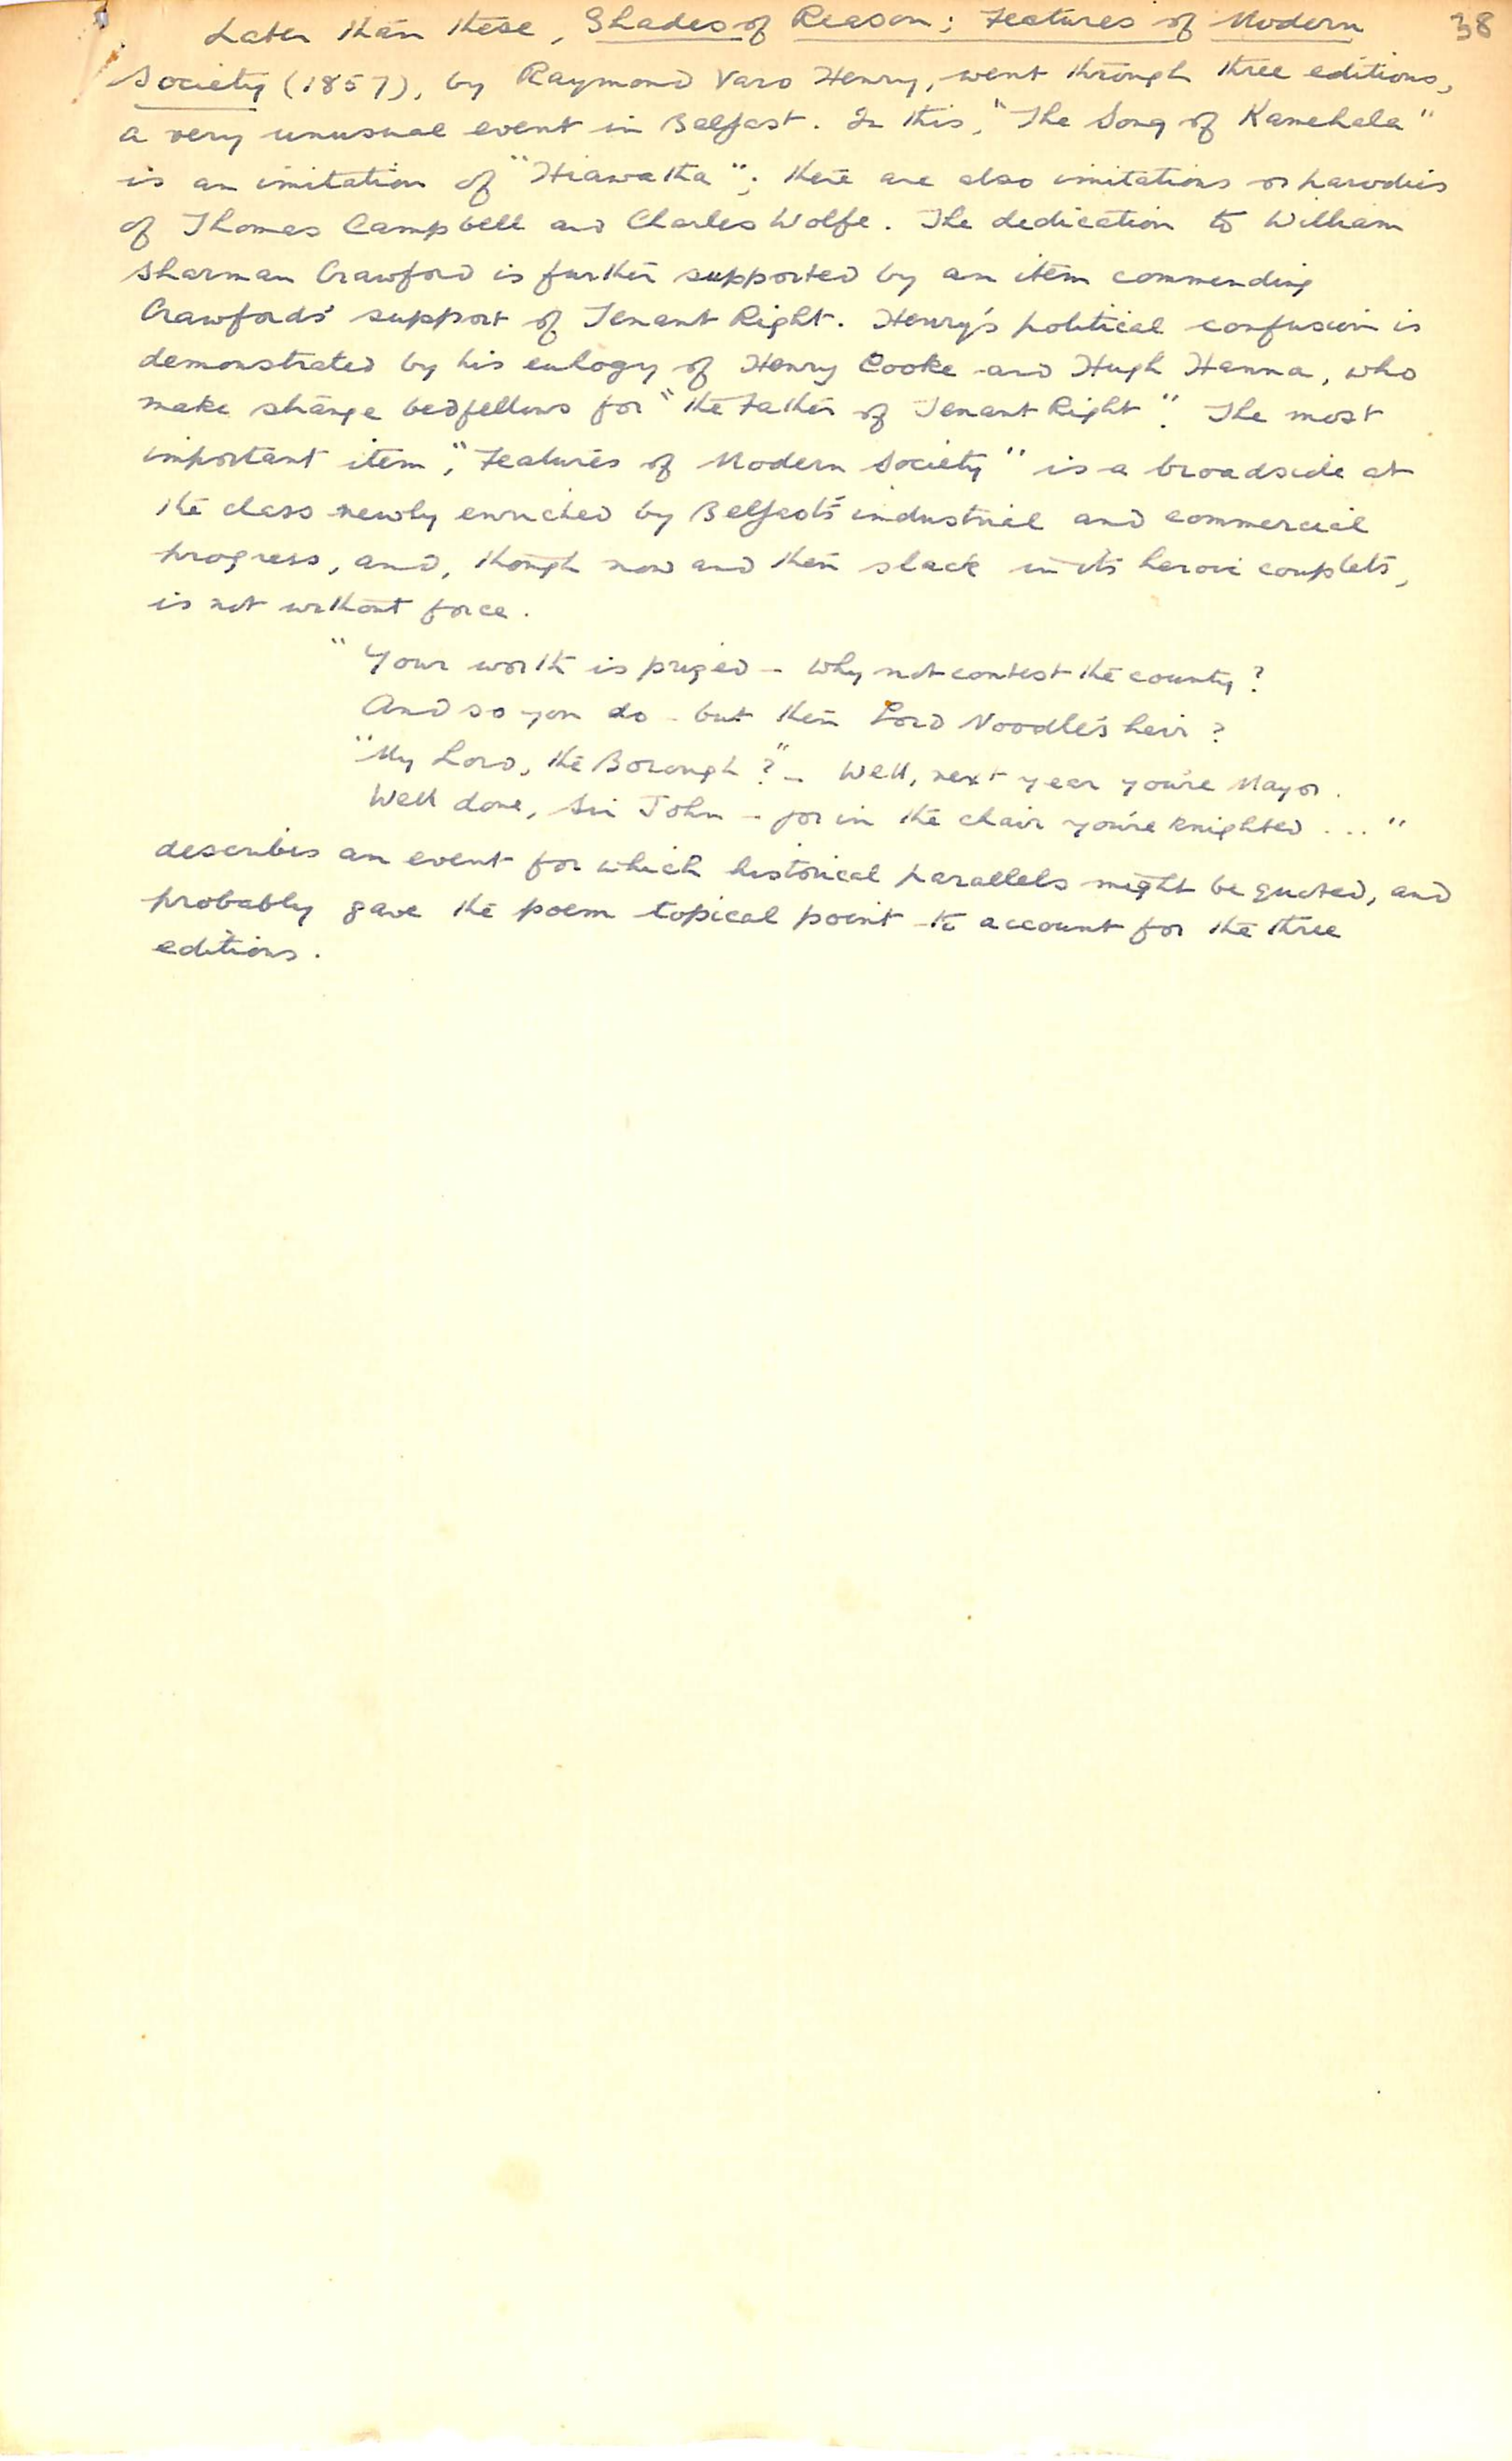 38
Later than these, Shades of Reason; Features of Modern
Society (1857), by Raymond Varo Henry, went through three editions,
a very unusual event in Belfast. In this, "The Song of Kamehala"
is an imitation of "Hiawatha"; there are also imitations or parodies
of Thomas Campbell and Charles Wolfe. The dedication to William
Sharman Crawford is further supported by an item commending
Crawford's support of Tenant Right. Henry's political confusion is
demonstrated by his eulogy of Henry Cooke and Hugh Hanna, who
make strange bedfellows for "the Father of Tenant Right". The most
important item, "Features of Modern Society" is a broadside at
the class newly enriched by Belfast's industrial and commercial
progress, and, though now and then slack in its heroic couplets,
is not without force.
"Your worth is prized - Why not contest the county?
And so you do - but then Lord Noodle's heir?
"My Lord, the Borough?" - Well, next year you're Mayor.
Well done, Sir John - for in the chair you're knighted ..."
describes an event for which historical parallels might be quoted, and
probably gave the poem topical point to account for the three
editions.